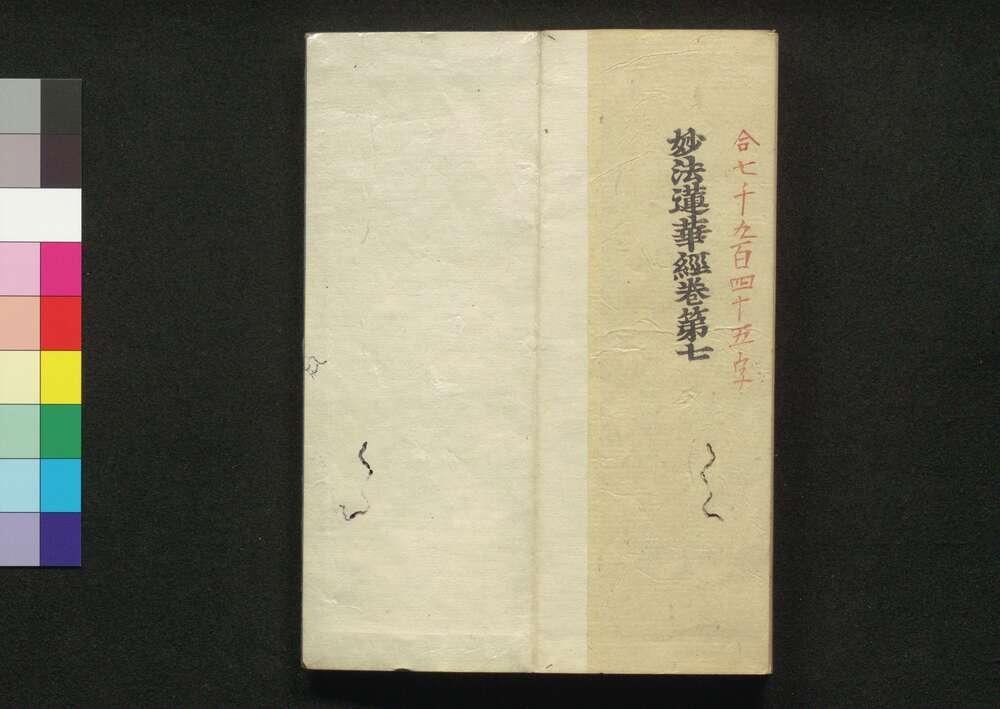 合七千九百四十五字
妙法蓮華經卷第七